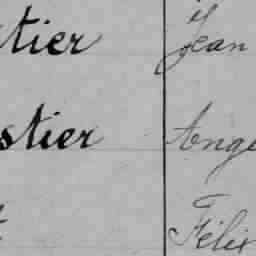 tier Jean
stier Ange
t Félix